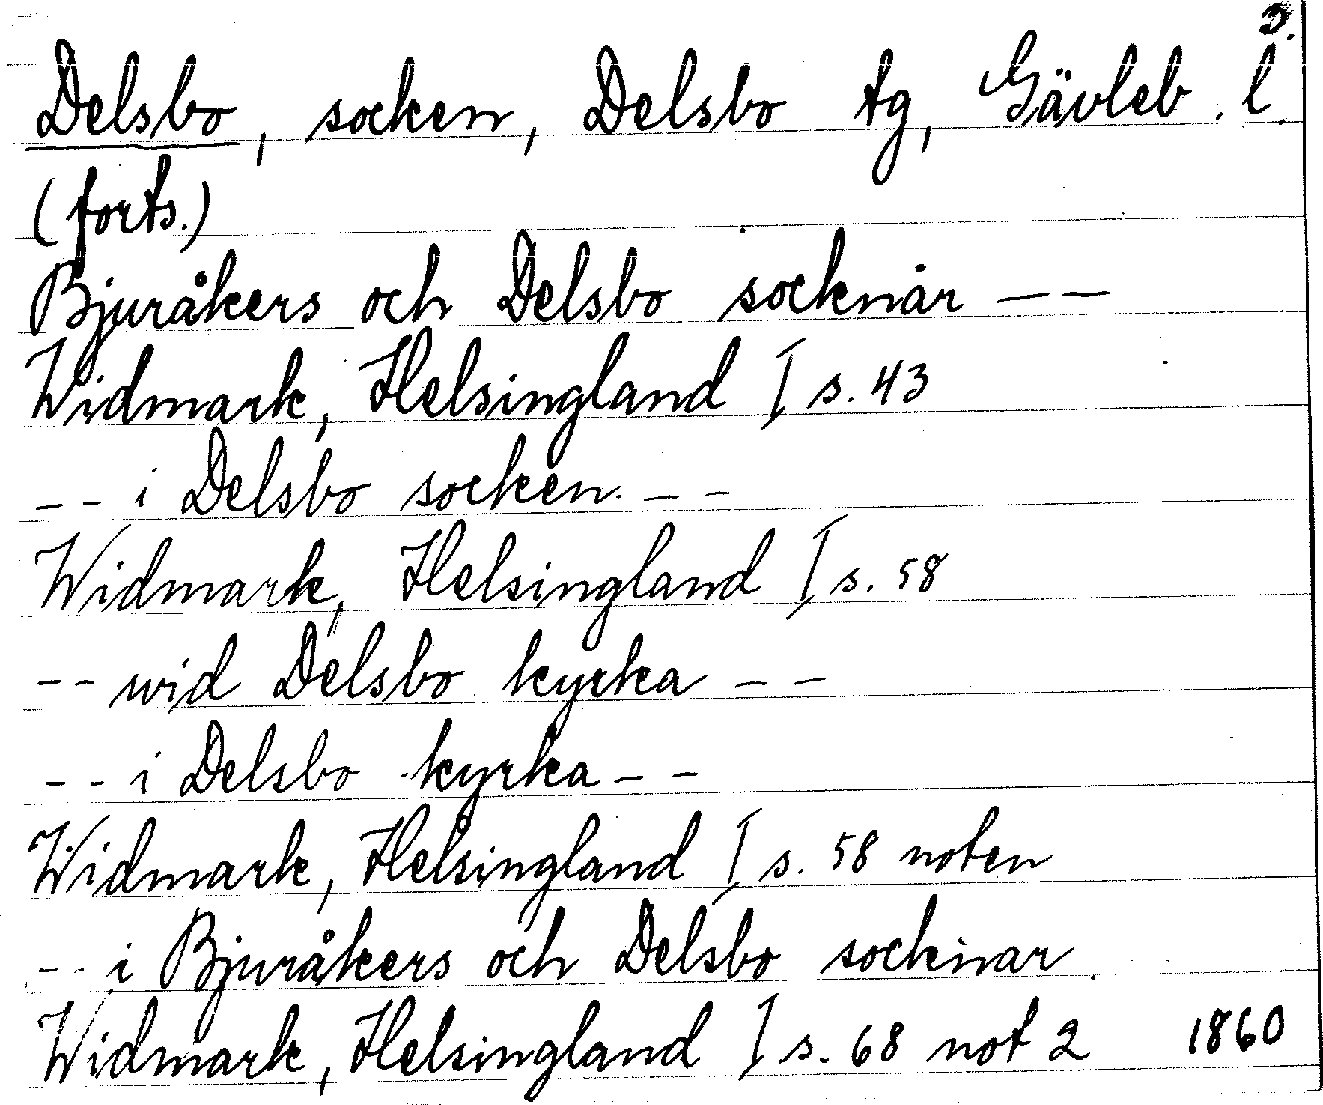 3.
Delsbo, socken, Delsbo tg, Gävleb. l.
(forts.)
Bjuråkers och Delsbo socknar — —
Widmark, Helsingland I s. 43
- - i Delsbo socken. - -
Widmark, Helsingland I s. 58
- - wid Delsbo kyrka - -
- - i Delsbo kyrka - -
Widmark, Helsingland I s. 58 noten
- - i Bjuråkers och Delsbo socknar.
Widmark, Helsingland I s. 68 not 2 1860